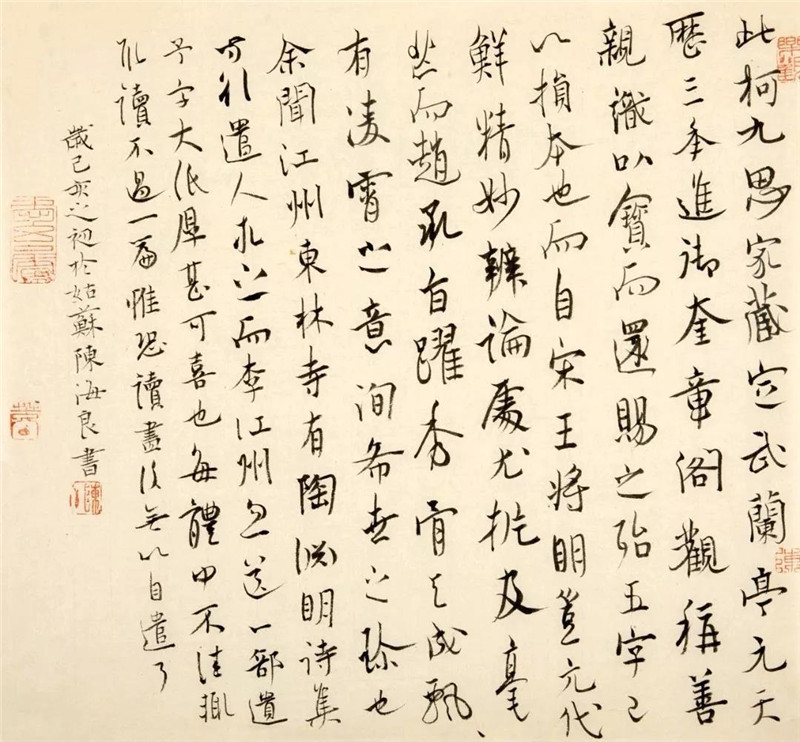 此柯九思家藏定武蘭亭元天
歷三年進御奎章閣觀稱善
親識以寶而還賜之殆五字已
以損本也而自宋王將明豈元代
鮮精妙辨論處尤挑及毫
悲而趙承旨躍秀骨天成飄
有凌霄之意洵希世之珍也
余聞江州東林寺有陶淵明詩集
方欲遣人求之而李江州忽送一部遺
予字大紙厚甚可喜也每體中不佳輒
取讀不過一篇惟恐讀盡後無以自遣了
歲己亥之初於姑蘇陳海良書